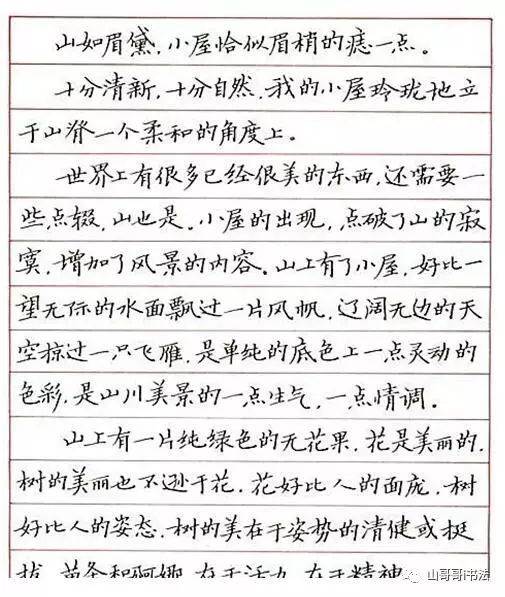 山如眉黛，小屋恰似眉梢的痣一点。
十分清新，十分自然，我的小屋玲珑地立
于山脊一个柔和的角度上。
世界上有很多已经很美的东西，还需要一
些点缀，山也是。小屋的出现，点破了山的寂
寞，增加了风景的内容。山上有了小屋，好比一
望无际的水面飘过一片风帆，辽阔无边的天
空掠过一只飞雁，是单纯的底色上一点灵动的
色彩，是山川美景的一点生气，一点情调。
山上有一片纯绿色的无花果，花是美丽的，
树的美丽也不逊于花。花好比人的面庞，树
好比人的姿态。树的美在于姿势的清健或挺
拔、苗条和婀娜，在于活力，在于精神
山哥哥书法